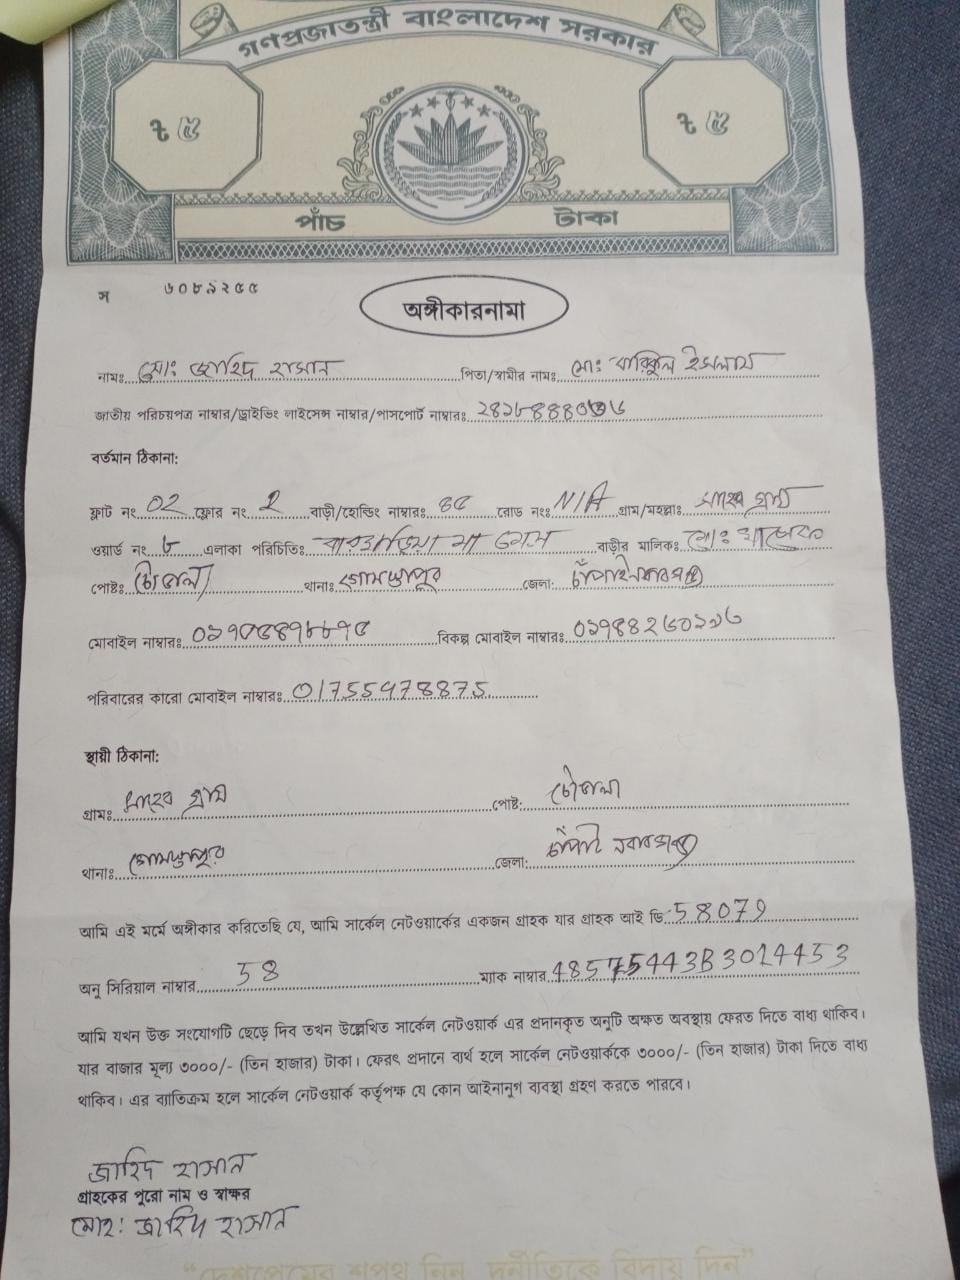 গণপ্রজাতন্ত্রী বাংলাদেশ সরকার
৳ ৫ ৳ ৫
পাঁচ টাকা
স ৬০৮৯২৫৫
অঙ্গীকারনামা
নামঃ মোঃ জাহিদ হাসান পিতা/স্বামীর নামঃ মোঃ ইসলাম
জাতীয় পরিচয়পত্র নাম্বার/ড্রাইভিং লাইসেন্স নাম্বার/পাসপোর্ট নাম্বারঃ
বর্তমান ঠিকানা:
ফ্লাট নং 02 ফ্লোর নং 2 বাড়ী/হোল্ডিং নাম্বারঃ ৪৫ রোড নংঃ N/A গ্রাম/মহল্লাঃ সাহেব গ্রাম
ওয়ার্ড নং ৮ এলাকা পরিচিতিঃ বাড়ীর মালিকঃ মোঃ
পোষ্টঃ চৌডালা থানাঃ গোমস্তাপুর জেলা: চাঁপাইনবাবগঞ্জ
মোবাইল নাম্বারঃ বিকল্প মোবাইল নাম্বারঃ
পরিবারের কারো মোবাইল নাম্বারঃ 01755978875
স্থায়ী ঠিকানা:
গ্রামঃ সাহেব গ্রাম পোষ্ট: চৌডালা
থানাঃ গোমস্তাপুর জেলা: চাঁপাই নবাবগঞ্জ
আমি এই মর্মে অঙ্গীকার করিতেছি যে, আমি সার্কেল নেটওয়ার্কের একজন গ্রাহক যার গ্রাহক আই ডি: 58079
অনু সিরিয়াল নাম্বার 58 ম্যাক নাম্বার 48575443B3014453
আমি যখন উক্ত সংযোগটি ছেড়ে দিব তখন উল্লেখিত সার্কেল নেটওয়ার্ক এর প্রদানকৃত অনুটি অক্ষত অবস্থায় ফেরত দিতে বাধ্য থাকিব।
যার বাজার মূল্য ৩০০০/- (তিন হাজার) টাকা। ফেরৎ প্রদানে ব্যর্থ হলে সার্কেল নেটওয়ার্ককে ৩০০০/- (তিন হাজার) টাকা দিতে বাধ্য
থাকিব। এর ব্যতিক্রম হলে সার্কেল নেটওয়ার্ক কর্তৃপক্ষ যে কোন আইনানুগ ব্যবস্থা গ্রহণ করতে পারবে।
জাহিদ হাসান
গ্রাহকের পুরো নাম ও স্বাক্ষর
মোঃ জাহিদ হাসান
"দেশপ্রেমের শপথ নিন, দুর্নীতিকে বিদায় দিন"